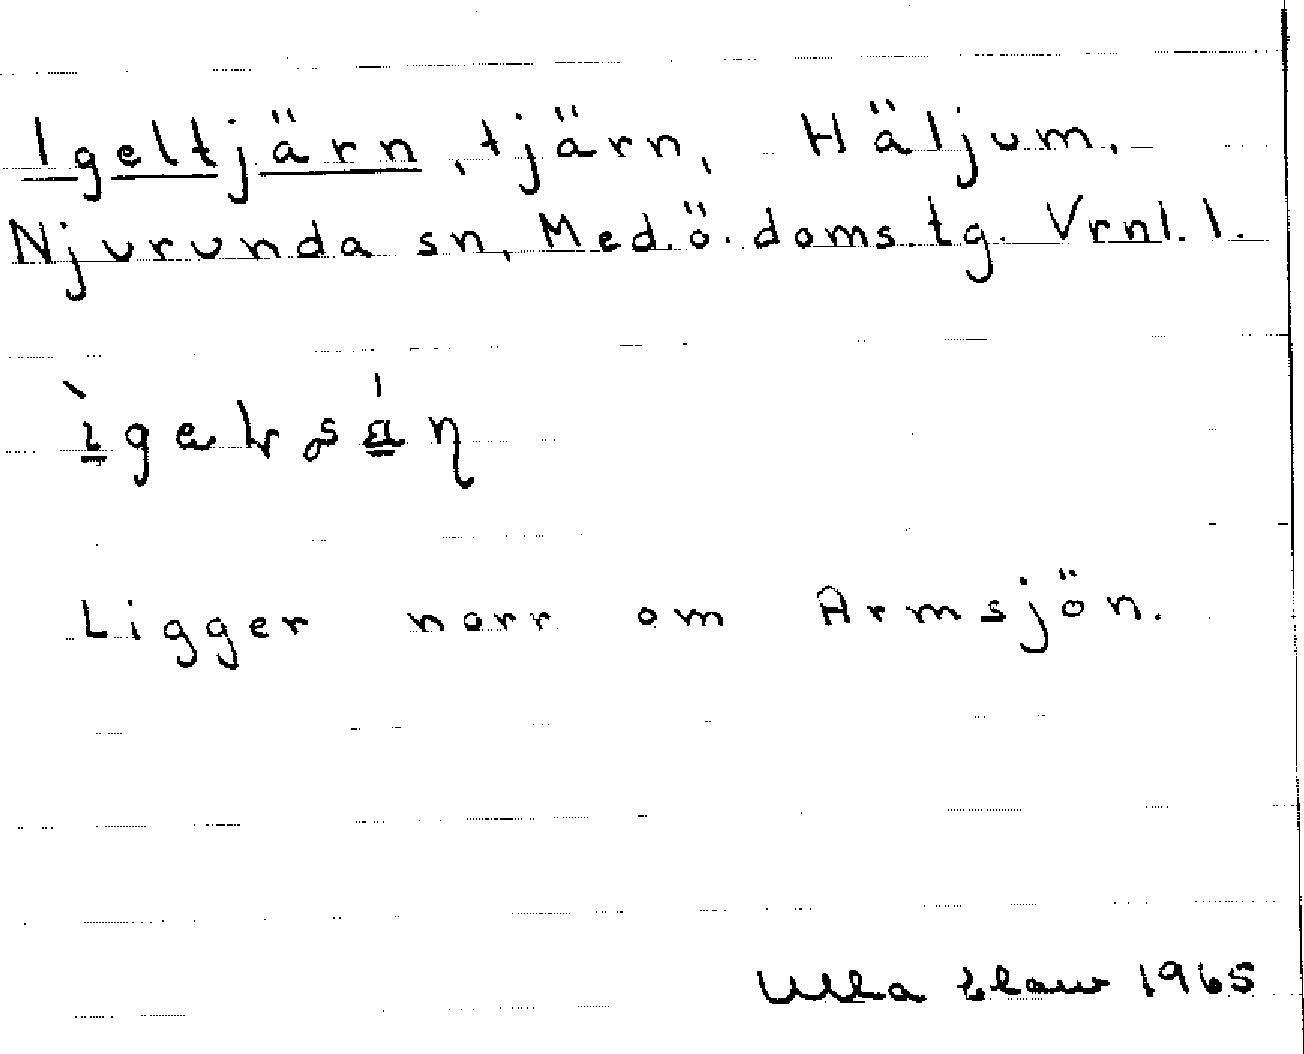 Igeltjärn, tjärn, Häljum,
Njurunda sn, Med.ö.doms.tg. Vrnl.l.
Ligger norr om Armsjön.
Ulla 1965